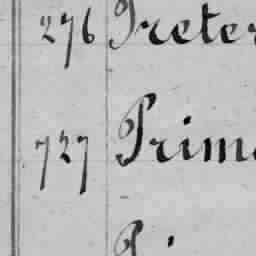 276 Preter
727 Prim